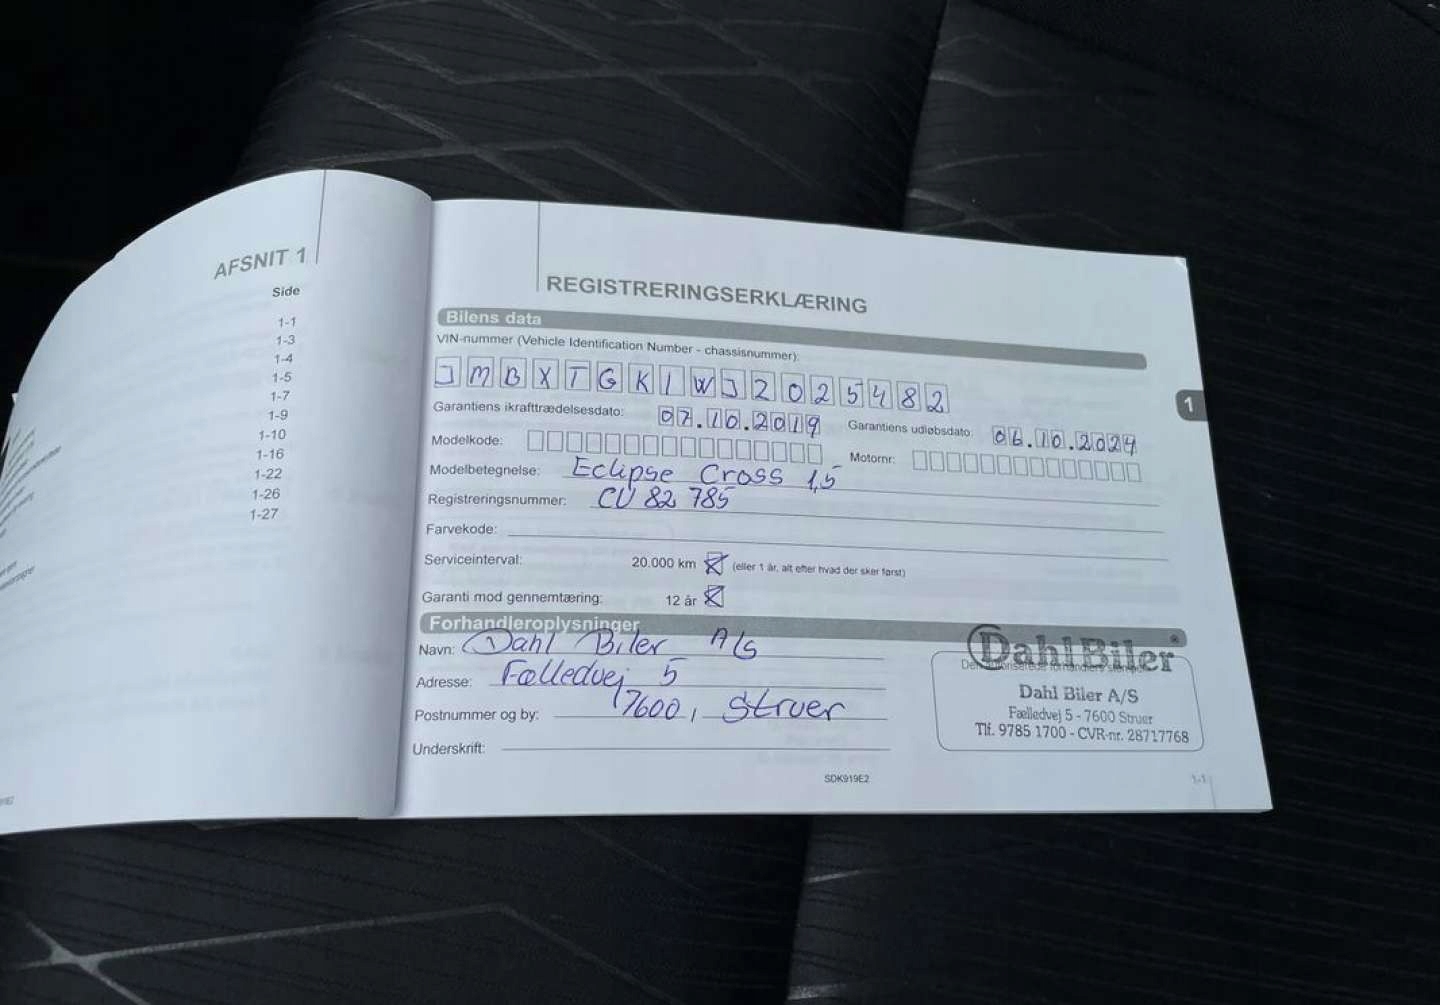 AFSNIT 1
Side
1-1
1-3
1-4
1-5
1-7
1-9
1-10
1-16
1-22
1-26
1-27
REGISTRERINGSERKLÆRING
Bilens data
VIN-nummer (Vehicle Identification Number - chassisnummer):
JMBXTGK1WJ2025482
Garantiens ikrafttrædelsesdato: 07.10.2019 Garantiens udløbsdato: 06.10.2024
Modelkode: Motornr:
Modelbetegnelse: Eclipse Cross 1,5
Registreringsnummer: CU 82 785
Farvekode:
Serviceinterval: 20.000 km (eller 1 år, alt efter hvad der sker først)
Garanti mod gennemtæring: 12 år
1
Forhandleroplysninger
Navn: Dahl Biler A/S
Adresse: Fælledvej 5
Postnummer og by: 7600, Struer
Underskrift:
DahlBiler®
Dahl Biler A/S
Fælledvej 5 - 7600 Struer
Tlf. 9785 1700 - CVR-nr. 28717768
SDK919E2
1-1